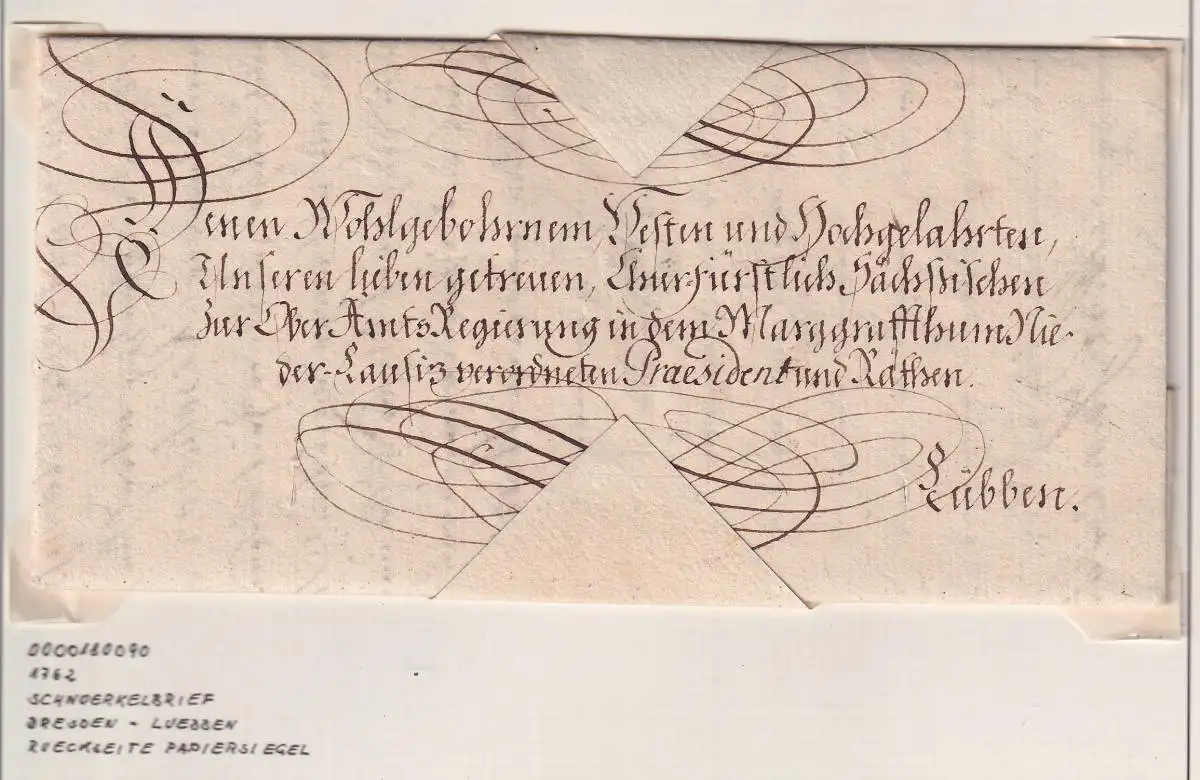 Denen Wohlgebohrnem, Vesten und Hochgelahrten,
Unseren lieben getreuen, Churfürstlich Sächssischen
zur Ober Amts Regierung in dem Marggraffthum Nie-
der-Lausiz verordneten Praesident und Räthen.
Lübben.
0000180090
1762
SCHNOERKELBRIEF
DRESDEN - LUEBBEN
RUECKSEITE PAPIERSIEGEL